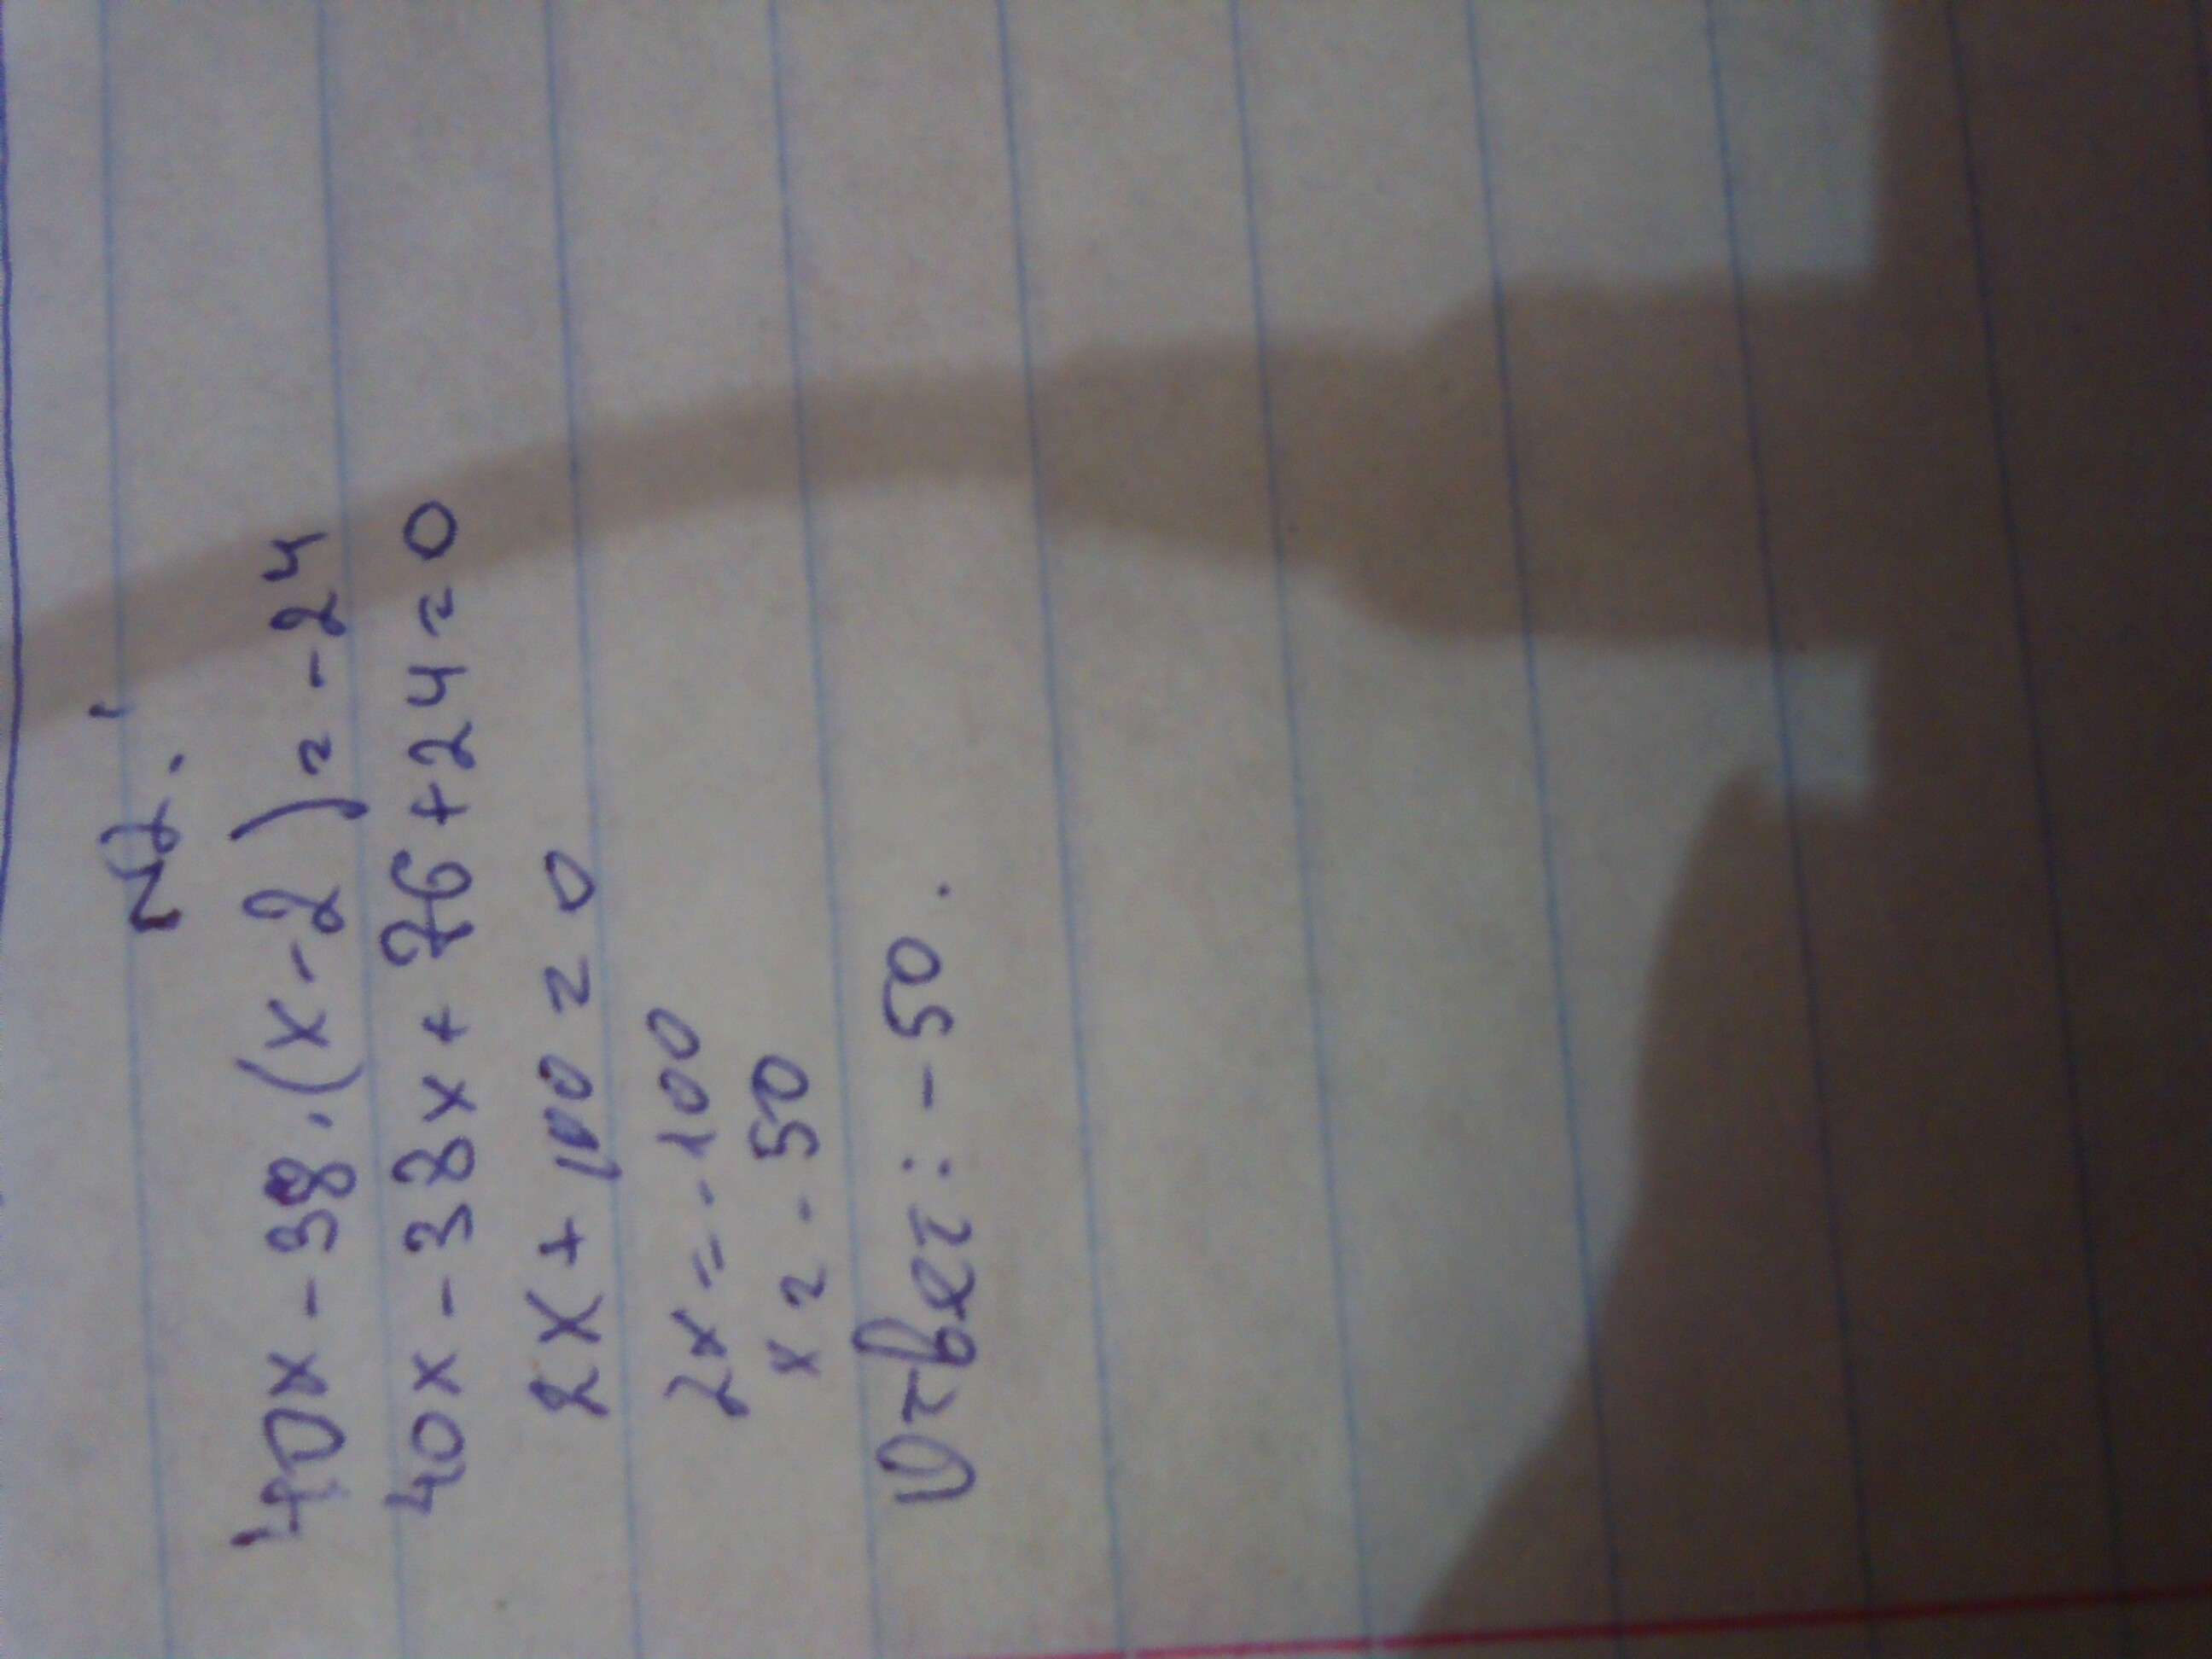 N2.
40x - 38·(x-2) = -24
40x - 38x + 76 + 24 = 0
2x + 100 = 0
2x = -100
x = -50
Ответ: -50.